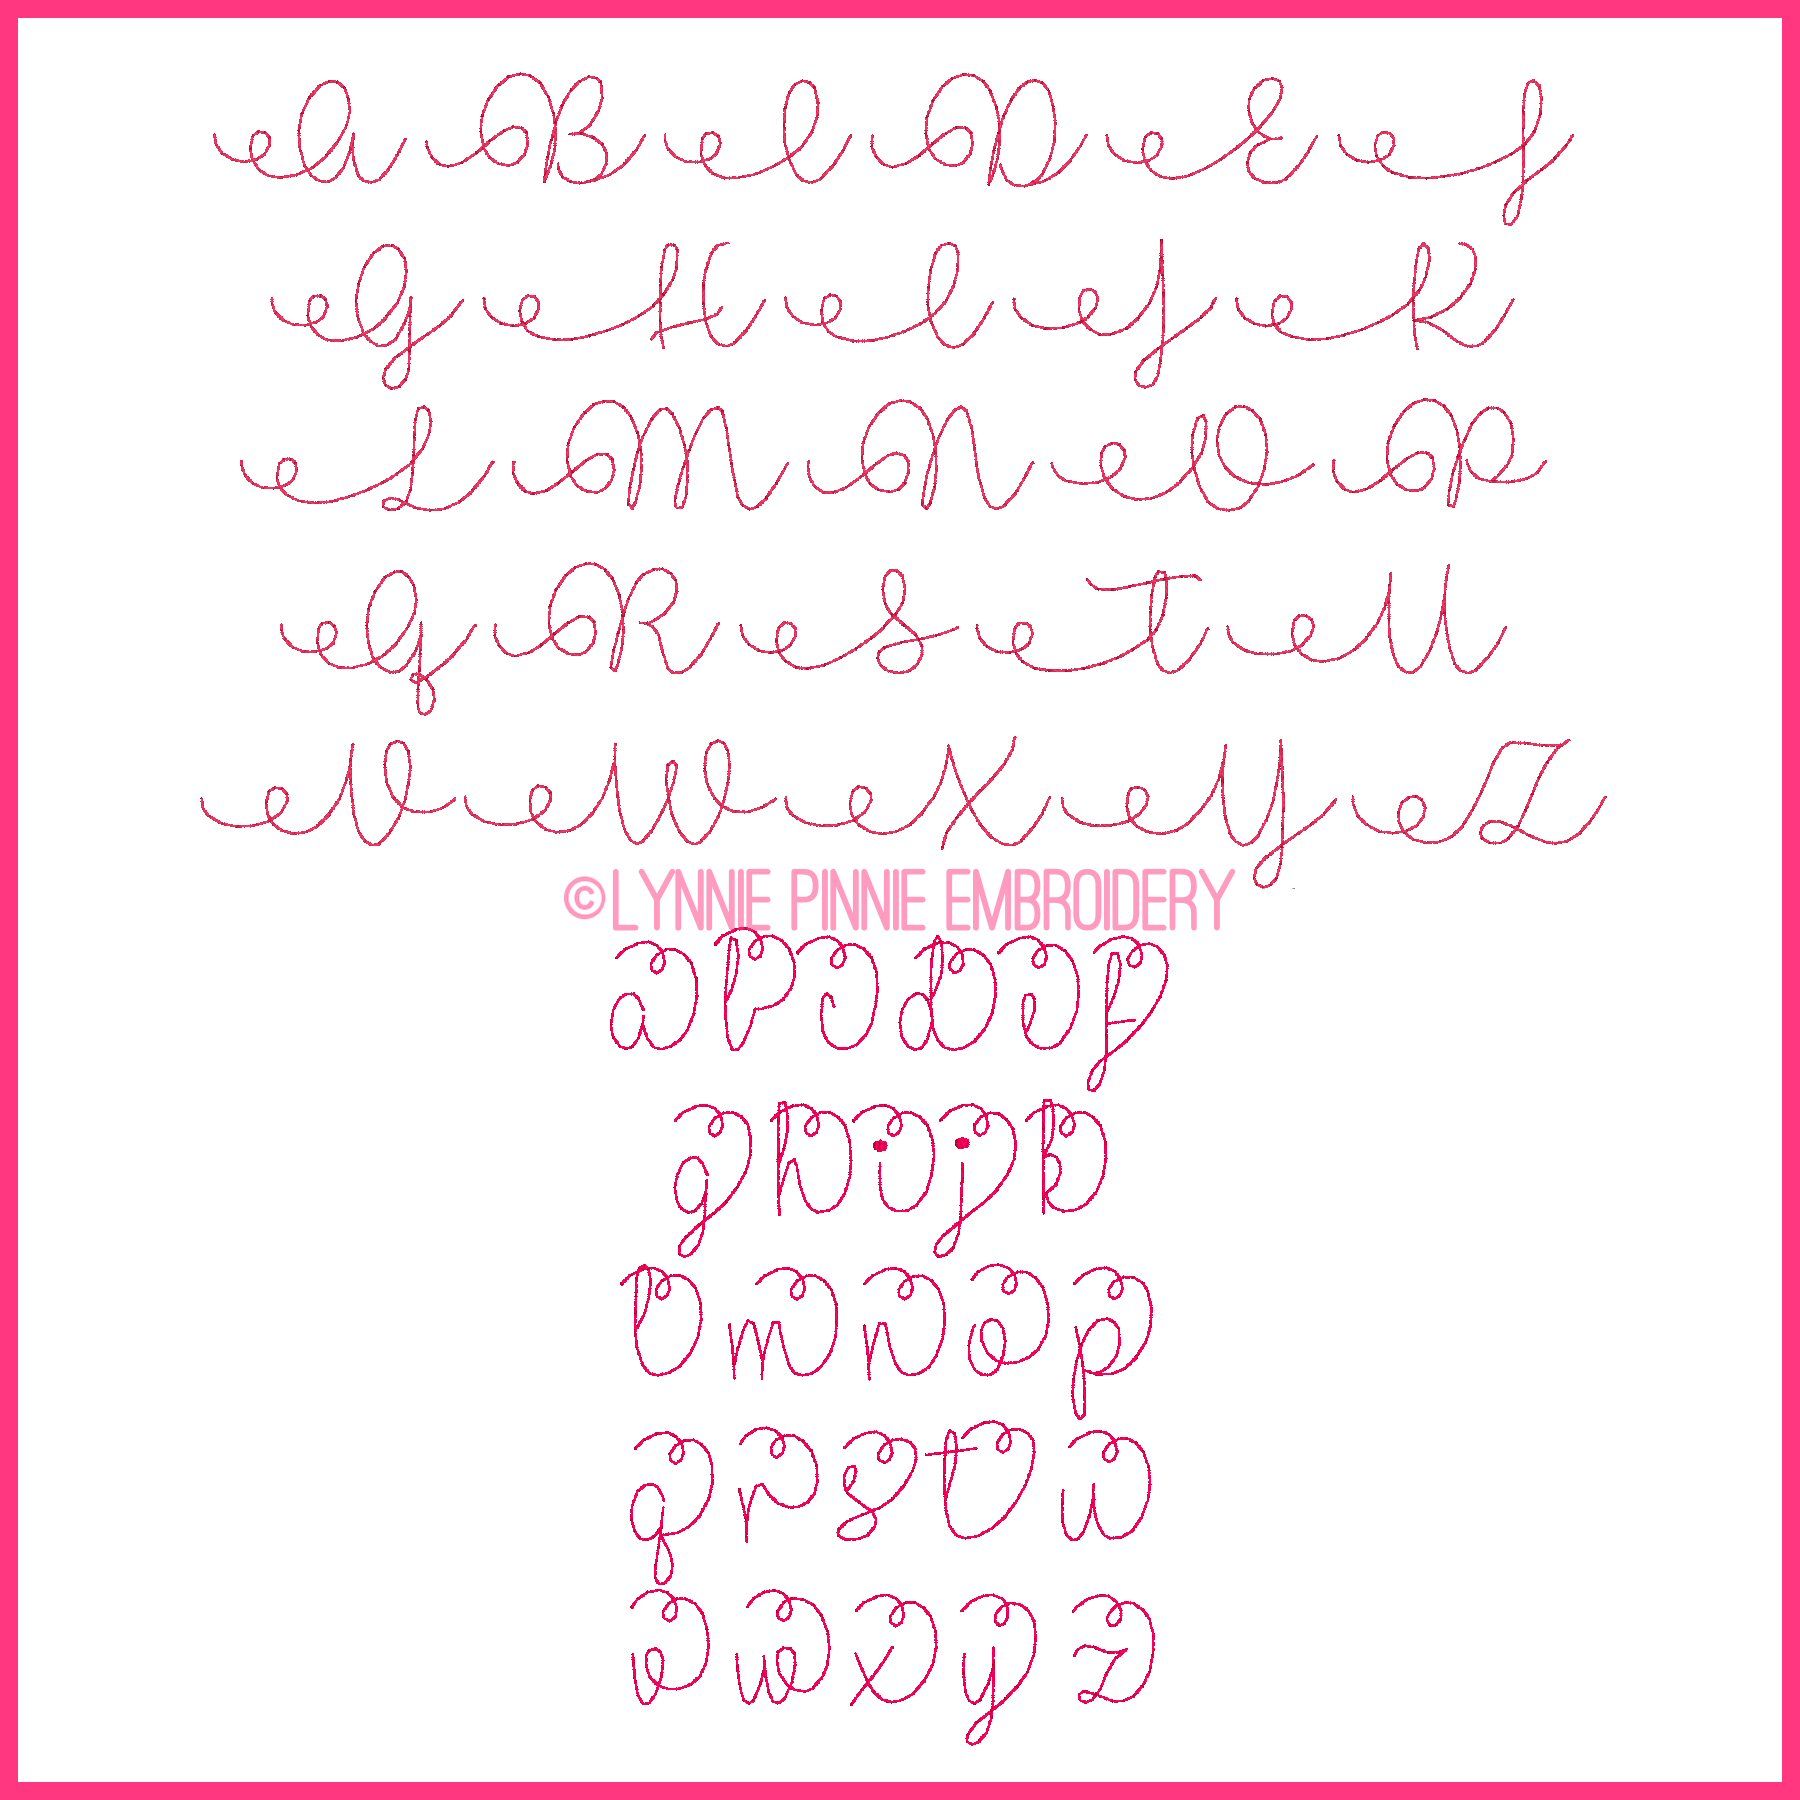 A B C D E F
G H I J K
L M N O P
Q R S T U
V W X Y Z
©LYNNIE PINNIE EMBROIDERY
a b c d e f
g h i j k
l m n o p
q r s t u
v w x y z